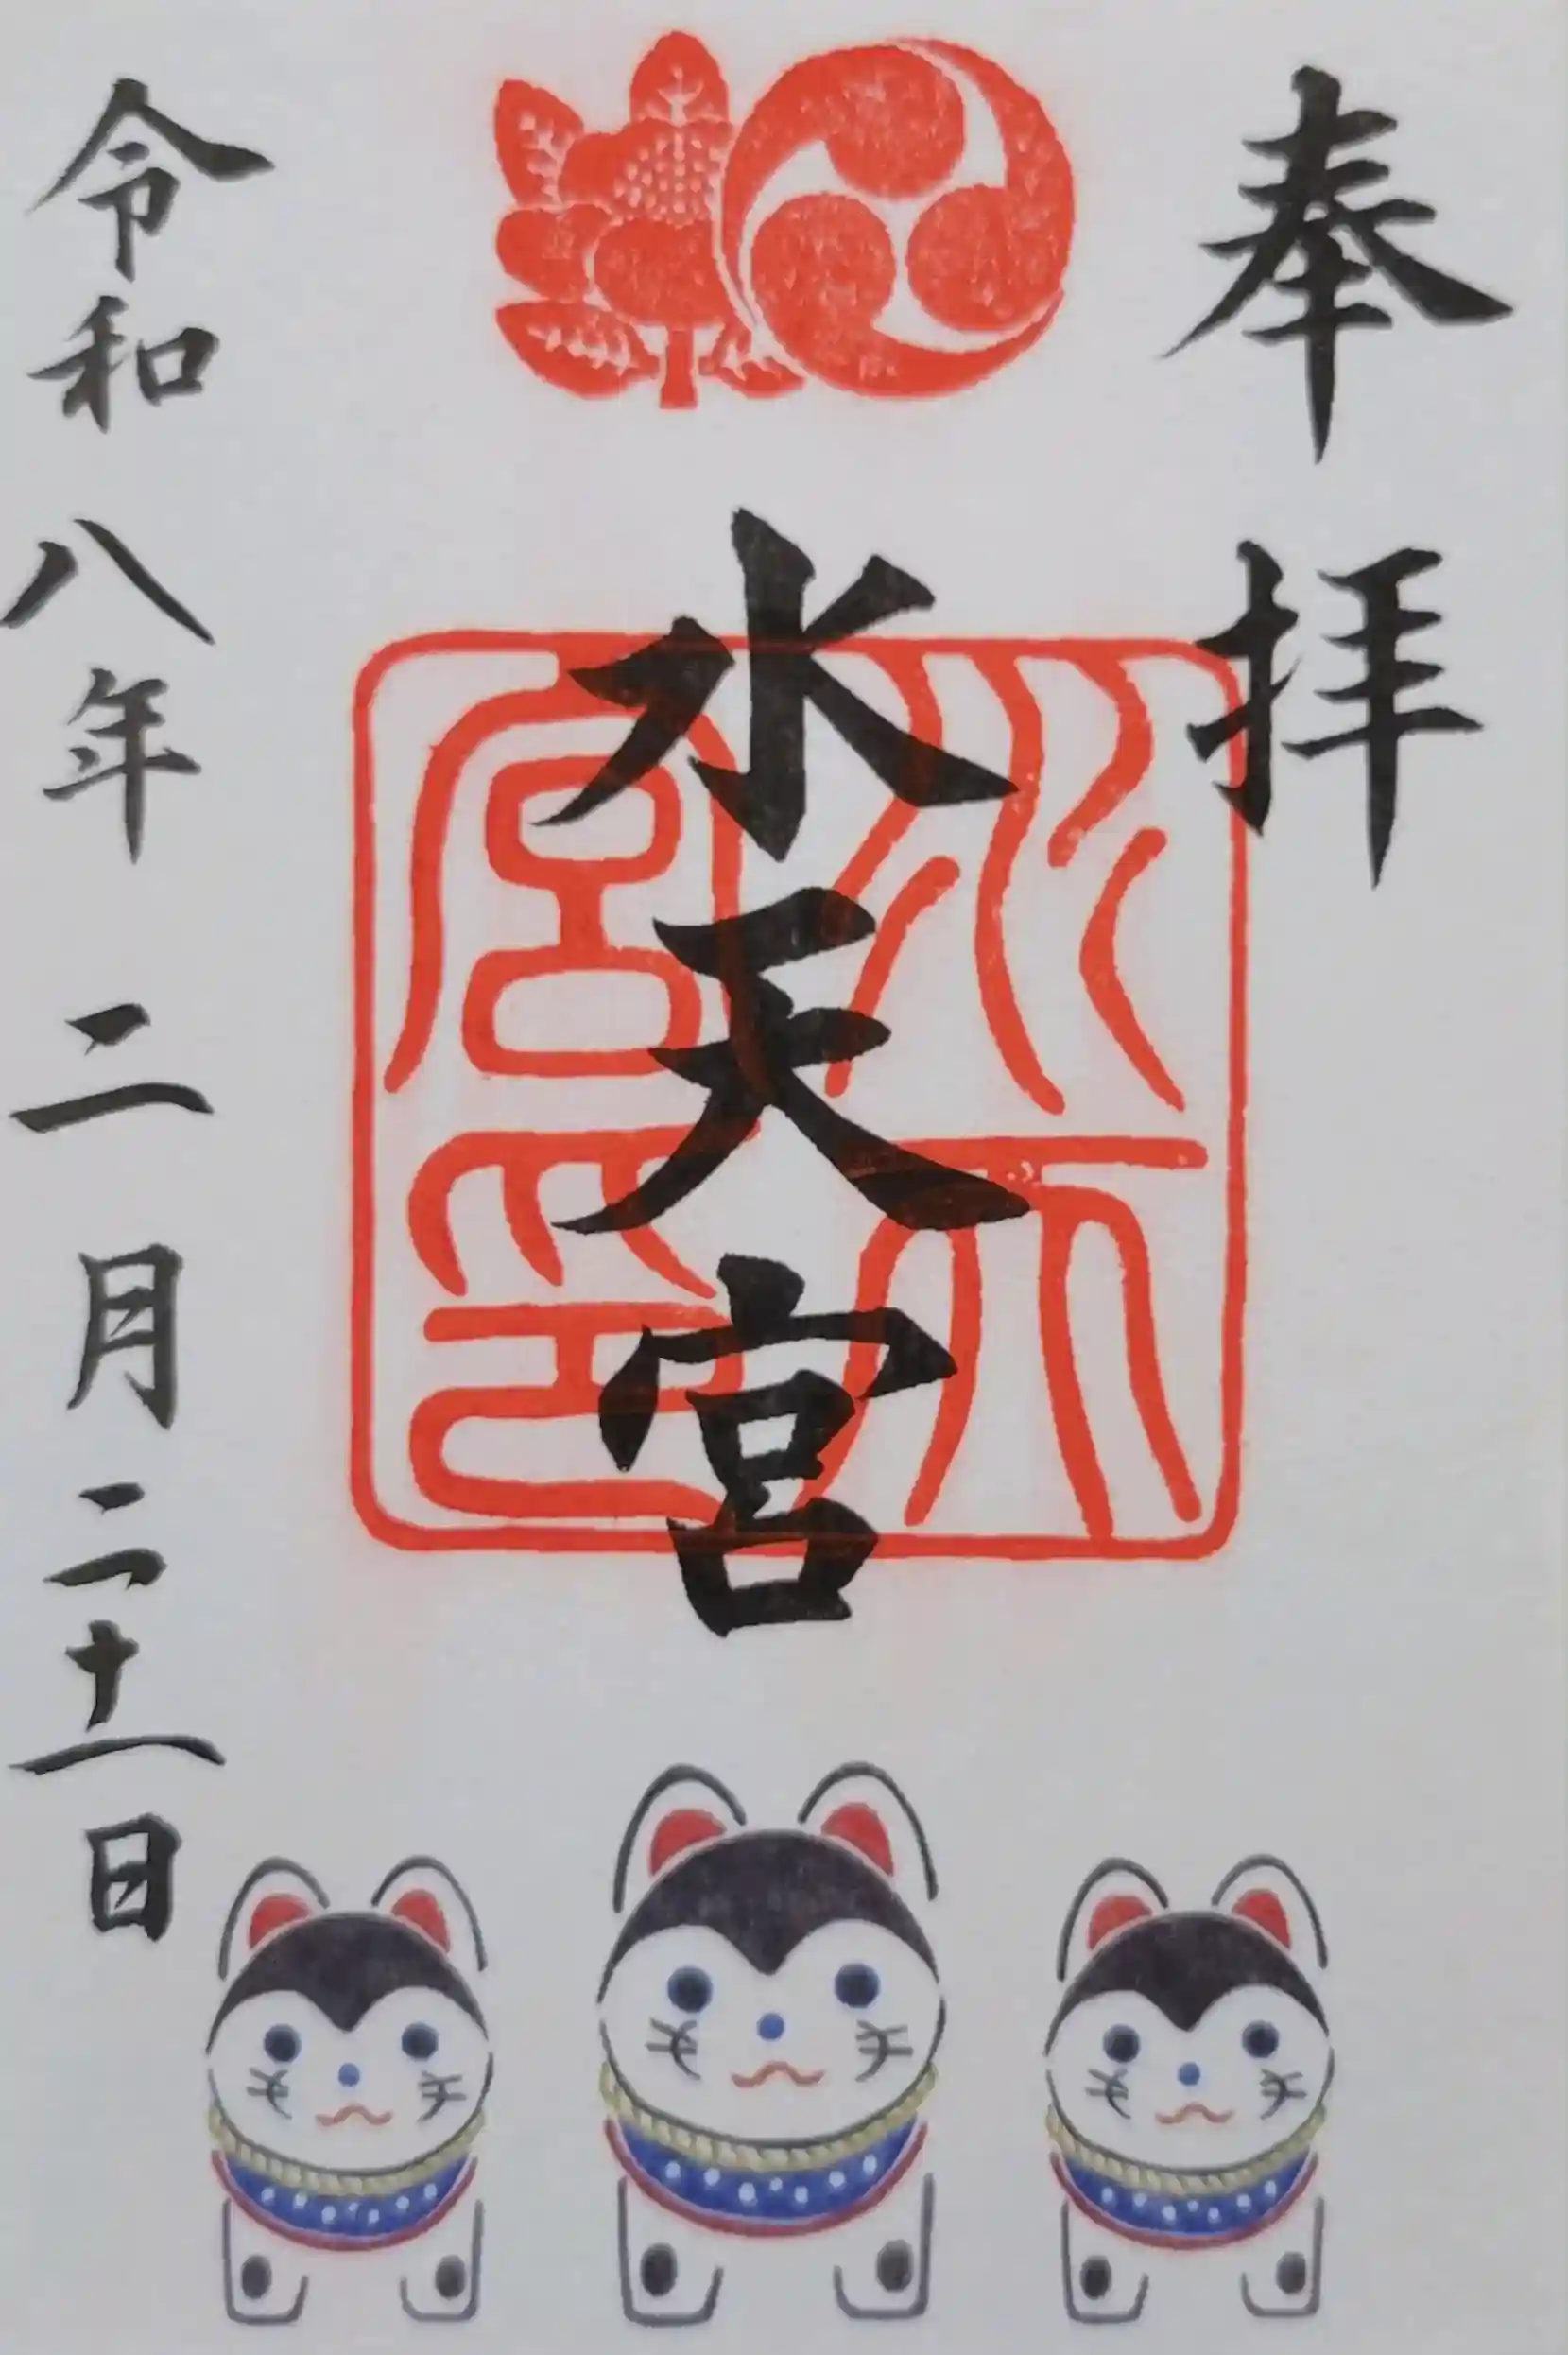 奉拝
水天宮
水天宮印
令和八年二月二十一日